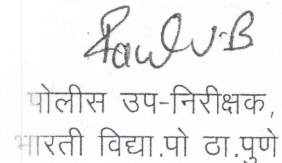 पोलीस उप-निरीक्षक,
भारती विद्या.पो ठा.पुणे